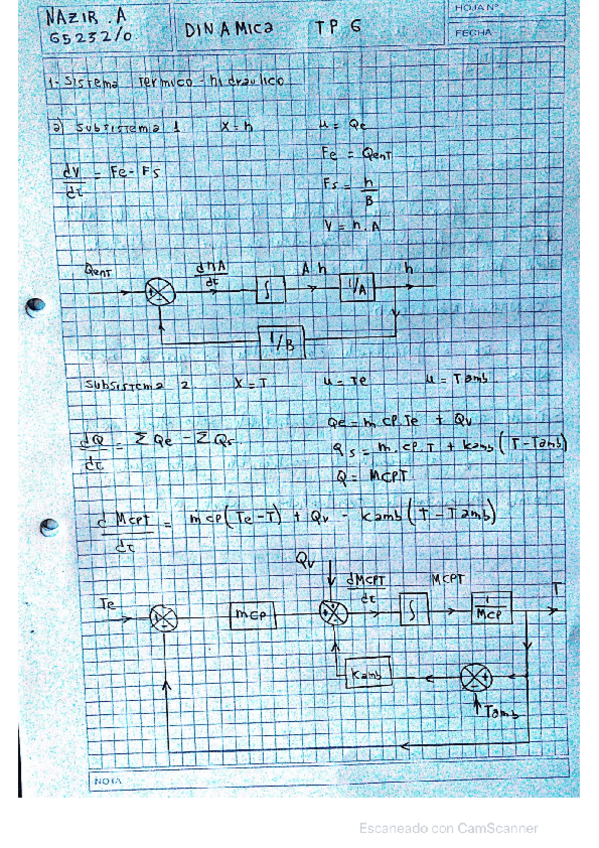 NAZIR. A
65232/0
DINAMICA TP 6
HOJA Nº
FECHA
1-Sistema Termico-hidraulico
a) SUBSISTEMA 1 X = h u = Qe
dV/dt = Fe - Fs
Fe = QenT
Fs = h/B
V = h.A
QenT dhA/dt ∫ A h 1/A h
1/B
SUBSISTEMA 2 X = T u = Te u = Tamb
Qe = m cp. Te + Qv
dQ/dt = Σ Qe - Σ Qs
Qs = m. cp. T + kamb (T - Tamb)
Q = MCPT
d MCPT/dt = mcp (Te - T) + Qv - kamb (T - Tamb)
Qv
dMCPT/dt MCPT
Te mcp ∫ 1/MCP T
Kamb
Tamb
NOTA
Escaneado con CamScanner